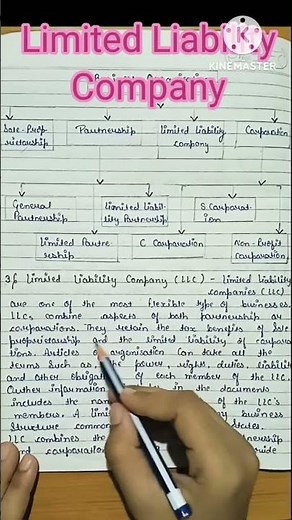 Limited Liability
Company
KINEMASTER
Sole-Prop
rietorship
Partnership
Limited Liability
company
Corporation
General
Partnership
Limited Liabil-
ity Partnership
S. Corporat-
ion
Limited Partne-
rship
C Corporation
Non-Profit
corporation
3) Limited Liability Company (LLC) - Limited liability
companies (LLC)
are one of the most flexible type of businesses.
LLCs combine aspects of both partnership and
corporations. They retain the tax benefits of sole
proprietorship and the limited liability of corpora
tions. Articles of organisation can take all the
terms such as the power, right, duties, liabiliti
and other oblig of each member of the LLC.
Other inform is in the documents
includes the name of the LLC's
members. A limit any business
structure common States.
LLC combines the nership
and corporation vide